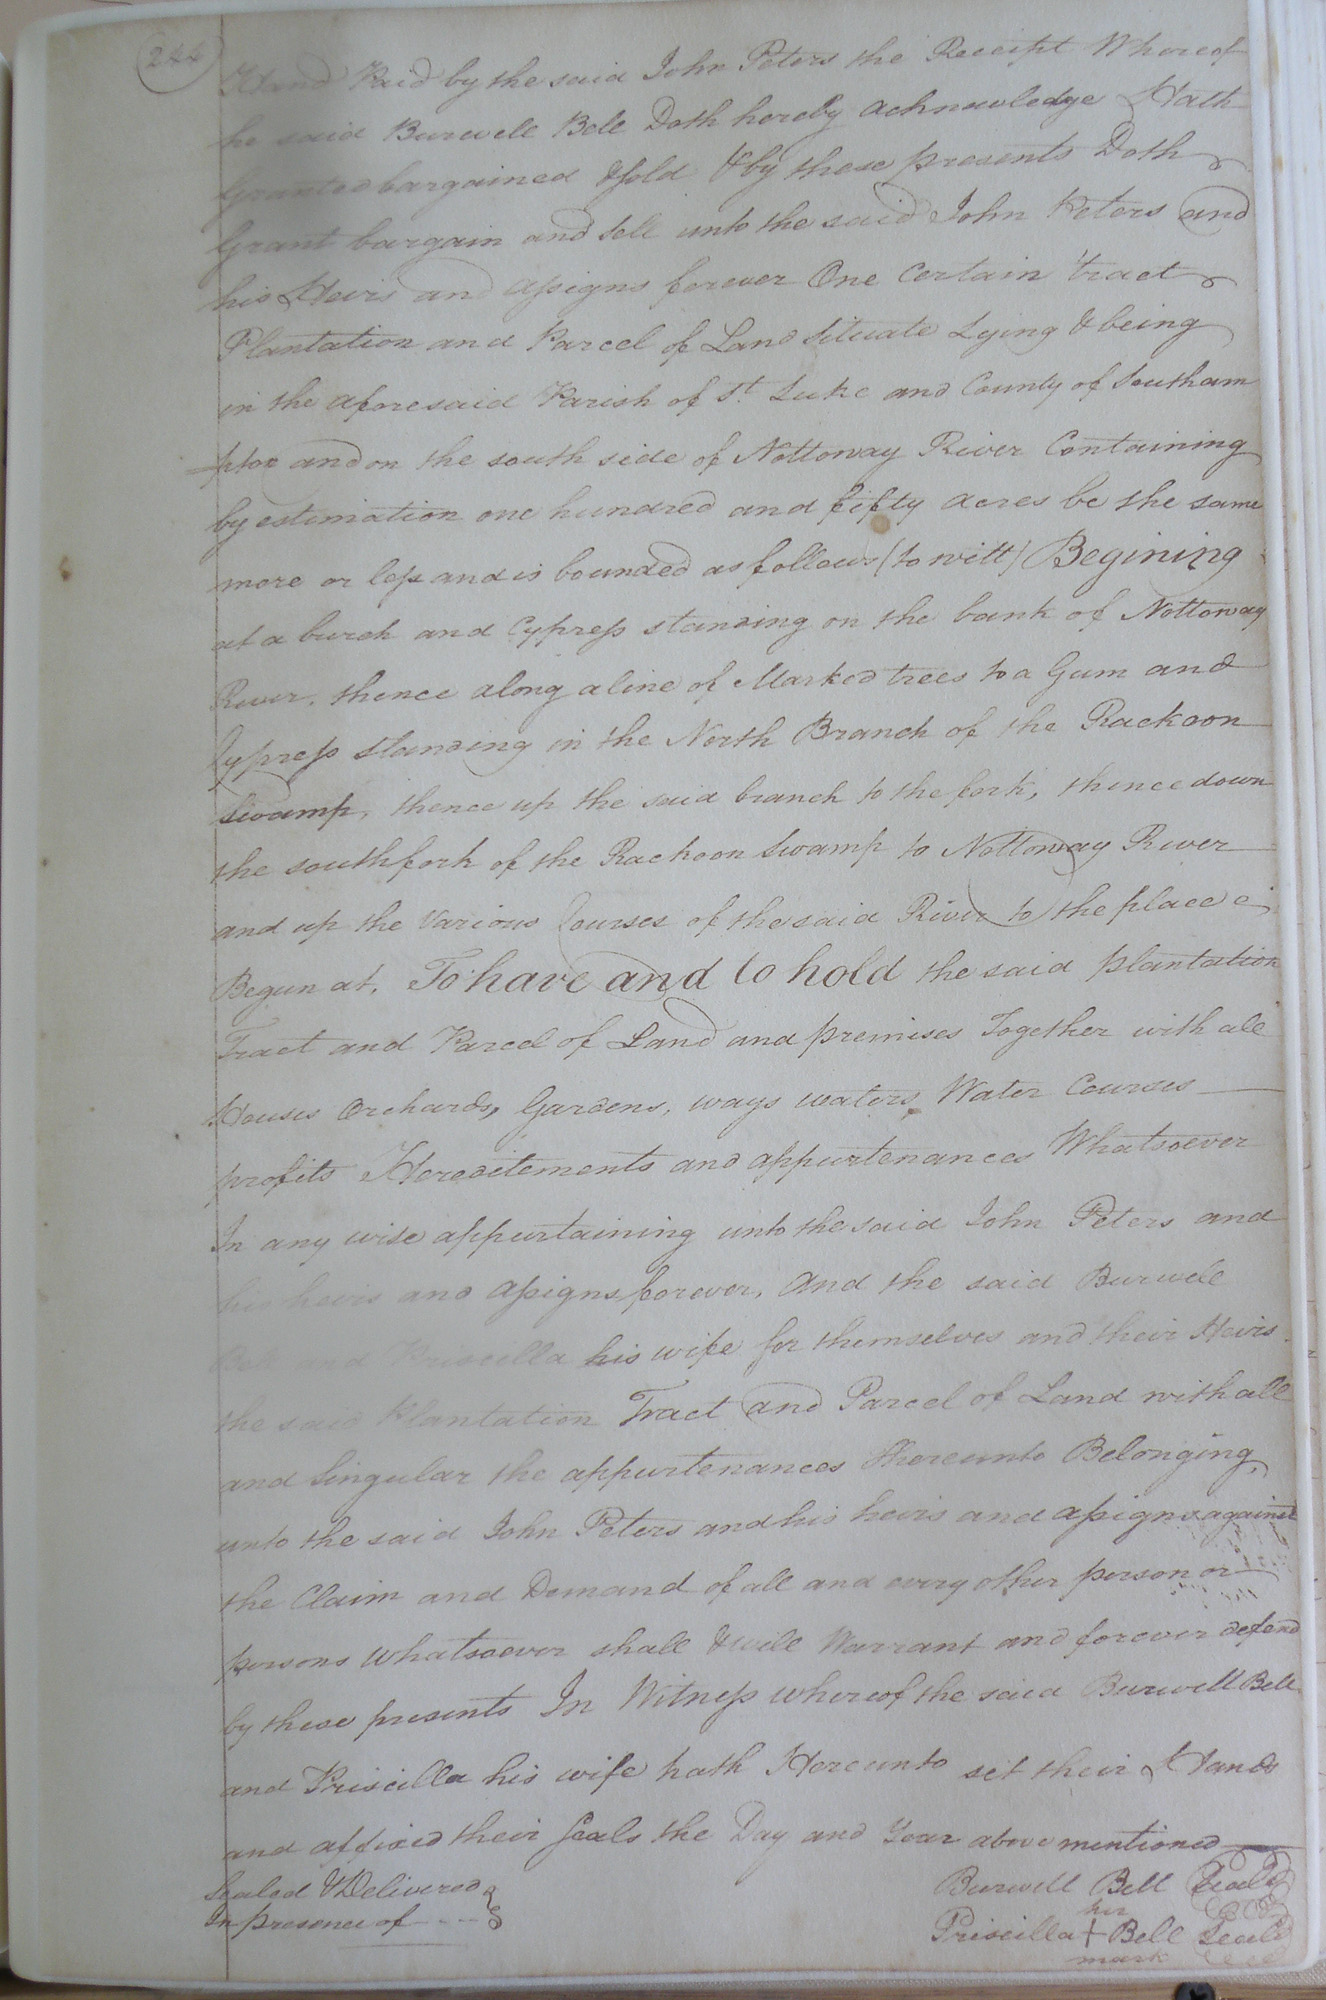 244
Hand Paid by the said John Peters the Receipt Whereof
he said Burwell Bell Doth hereby acknowledge Hath
Granted bargained & sold & by these presents Doth
Grant bargain and sell unto the said John Peters and
his Heirs and assigns forever One Certain tract
Plantation and Parcel of Land Situate Lying & being
in the aforesaid Parish of St. Luke and County of Southam
pton and on the south side of Nottoway River Containing
by estimation one hundred and fifty acres be the same
more or less and is bounded as follows (to witt) Begining
at a burch and Cypress standing on the bank of Nottoway
River, thence along a line of Marked trees to a Gum and
Cypress standing in the North Branch of the Rackoon
Swamp, thence up the said branch to the fork, thence down
the south fork of the Rackoon Swamp to Nottoway River
and up the Various Courses of the said River to the place
Begun at, To have and to hold the said plantation
Tract and Parcel of Land and premises Together with all
Houses Orchards, Gardens, ways waters, Water Courses
profits Hereditements and appurtenances Whatsoever
In any wise appurtaining unto the said John Peters and
his heirs and assigns forever, And the said Burwell
Bell and Priscilla his wife for themselves and their Heirs
the said Plantation Tract and Parcel of Land with all
and Singular the appurtenances thereunto Belonging,
unto the said John Peters and his heirs and assigns against
the Claim and Demand of all and every other person or
persons whatsoever shall & will Warrant and forever defend
by these presents In Witness whereof the said Burwell Bell
and Priscilla his wife hath Hereunto set their Hands
and affixed their Seals the Day and Year above mentioned
Sealed & Delivered
In presence of
Burwell Bell Seal
her
Priscilla + Bell Seal
mark